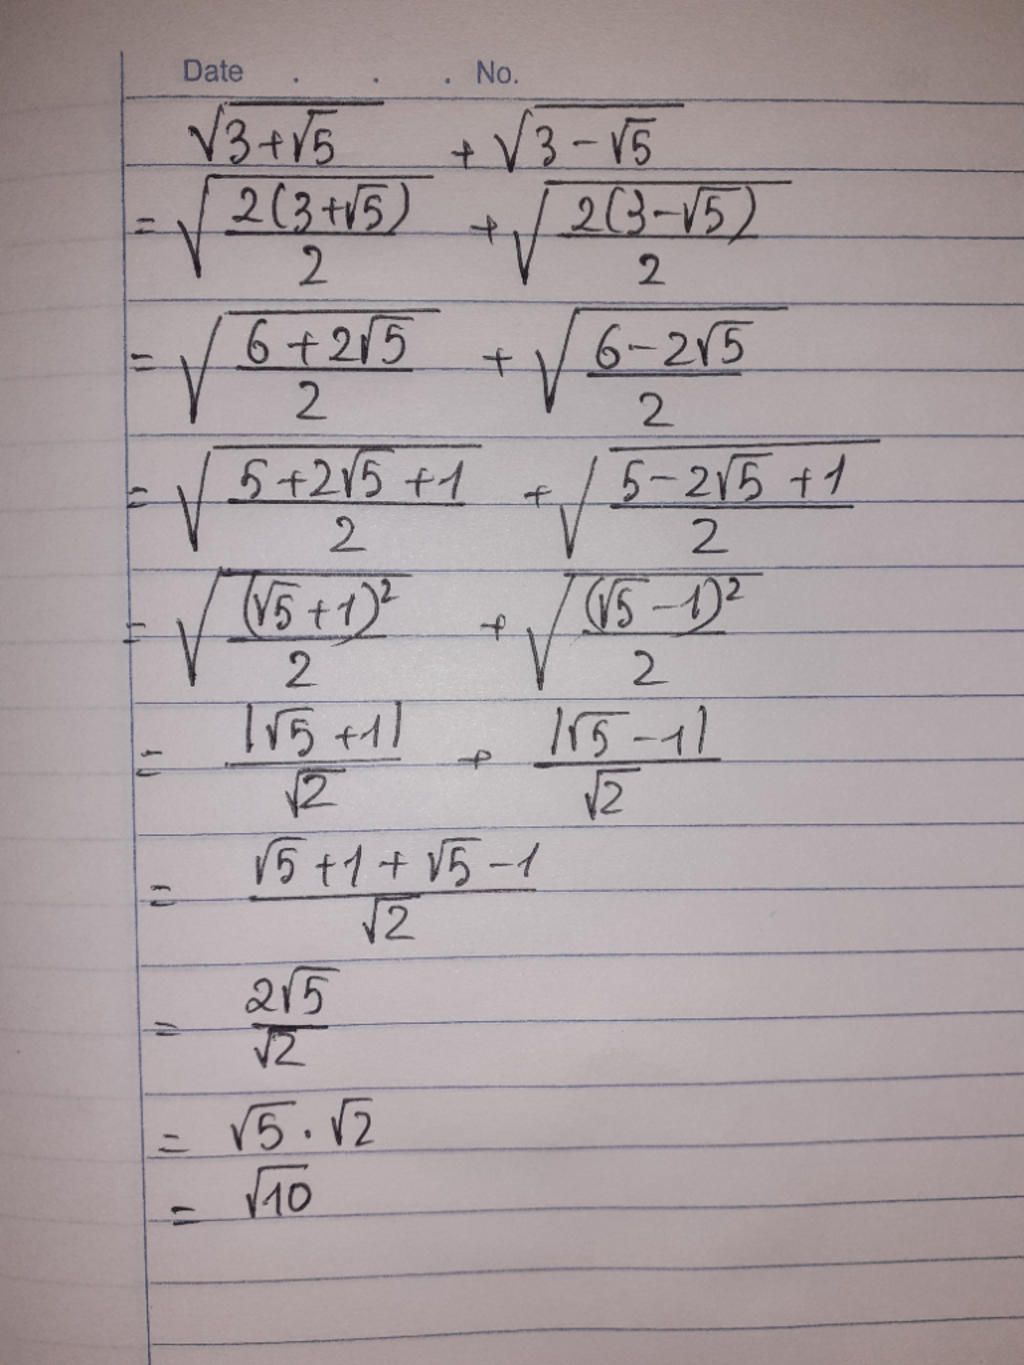 Date . . . No.
√(3+√5) + √(3-√5)
= √(2(3+√5)/2) + √(2(3-√5)/2)
= √((6+2√5)/2) + √((6-2√5)/2)
= √((5+2√5+1)/2) + √((5-2√5+1)/2)
= √((√5+1)²/2) + √((√5-1)²/2)
= |√5+1|/√2 + |√5-1|/√2
= (√5+1+√5-1)/√2
= 2√5/√2
= √5 . √2
= √10